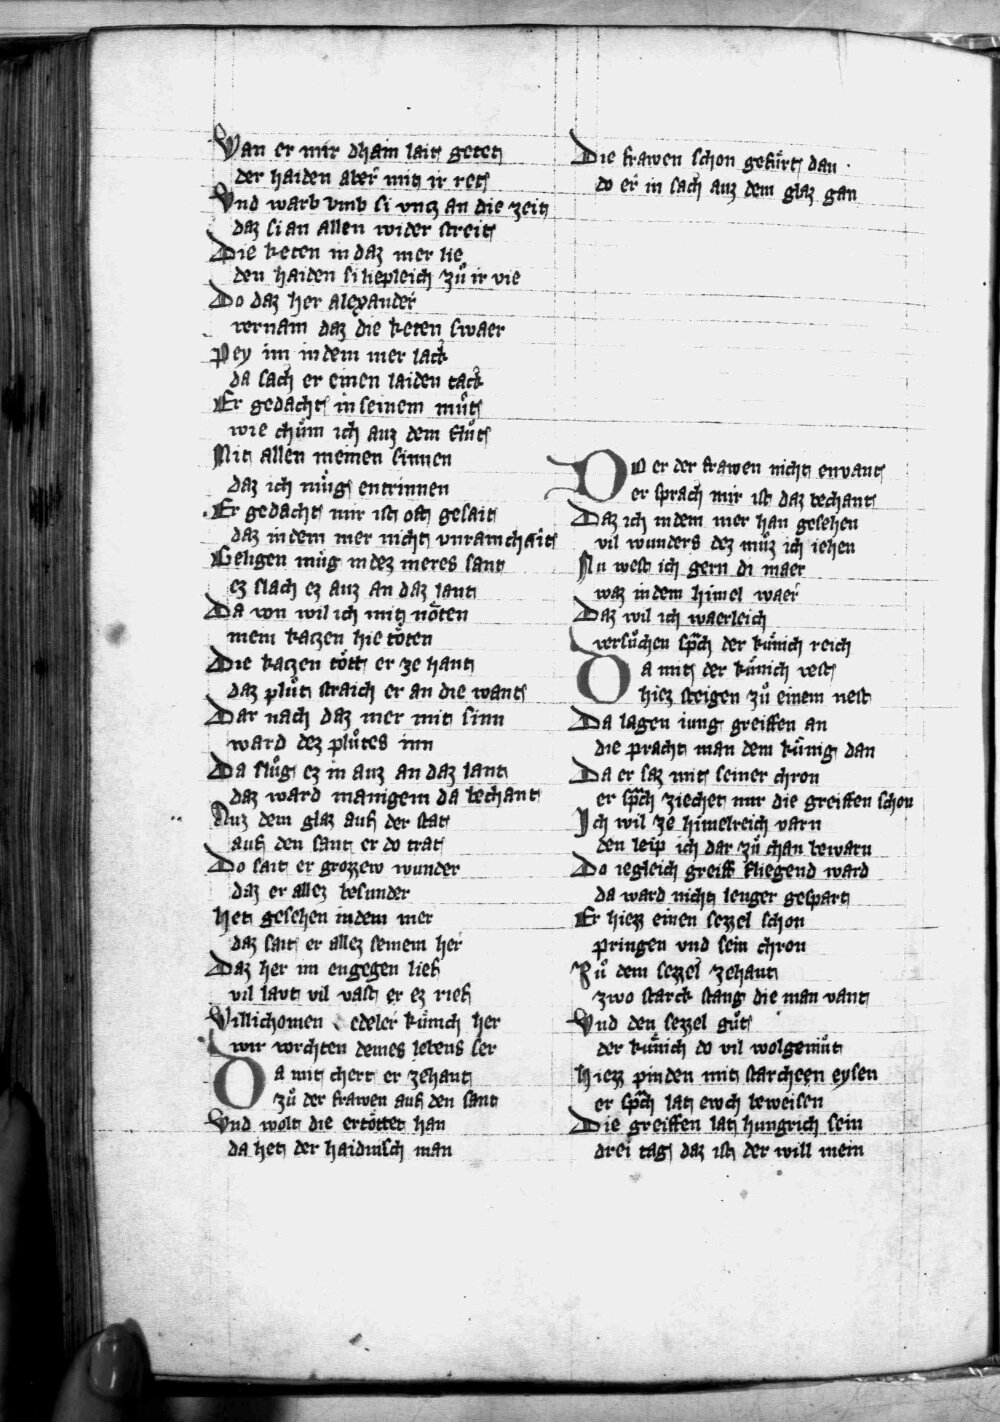 Wan er mir dhain lait getet
der haiden aber mit ir ret
Vnd warb vmb si vntz an die zeit
daz si an allen wider streit
Die keten in daz mer lie
den haiden si liepleich zů ir vie
Do daz her alexander
vernam daz die keten swaer
Pey im in dem mer lack
da sach er einen laiden tack
Er gedacht in seinem můt
wie chům ich auz dem flůt
Mit allen meinen sinnen
daz ich műg entrinnen
Er gedacht mir ist oft gesait
daz in dem mer nicht vnrainchait
Geligen műg in dez meres sant
ez slach ez auz an daz lant
Da von wil ich mit nőten
mein katzen hie tőten
Die katzen tőtt er ze hant
daz plůt straich er an die want
Dar nach daz mer mit sinn
ward dez plůtes inn
Da slůg ez in auz an daz lant
daz ward manigem da bechant
Auz dem glaz auf der stat
auf den sant er do trat
Do sait er grozzew wunder
daz er allez besunder
Het gesehen in dem mer
daz sait er allez seinem her
Daz her im engegen lief
vil laut vil vast er ez rief
Willichomen edeler kűnich her
wir vorchten deines lebens ser
Da mit chert er zehant
zů der frawen auf den sant
Vnd wolt die ertőttet han
da het der haidinsch man
Die frawen schon gefűrt dan
do er in sach auz dem glaz gan
Do er der frawen nicht envant
er sprach mir ist daz bechant
Daz ich in dem mer han gesehen
vil wunders dez můz ich iehen
Nu west ich gern di maer
waz in dem himel waer
Daz wil ich waerleich
versůchen sp̄ch der kűnich reich
Da mit der kűnich vest
hiez steigen zů einem nest
Da lagen iung greiffen an
die pracht man dem kűnig dan
Da er saz mit seiner chron
er sp̄ch ziechet mir die greiffen schon
Ich wil ze himelreich varn
den leip ich dar zů chan bewarn
Do iegleich greiff fliegend ward
da ward nicht lenger gespart
Er hiezz einen sezzel schon
pringen vnd sein chron
Zů dem sezzel zehant
zwo starck stang die man vant
Vnd den sezzel gůt
der kűnich do vil wolgemůt
Hiezz pinden mit starcheen eysen
er sp̄ch lat ewch beweisen
Die greiffen lat hungrich sein
drei tag daz ist der will mein